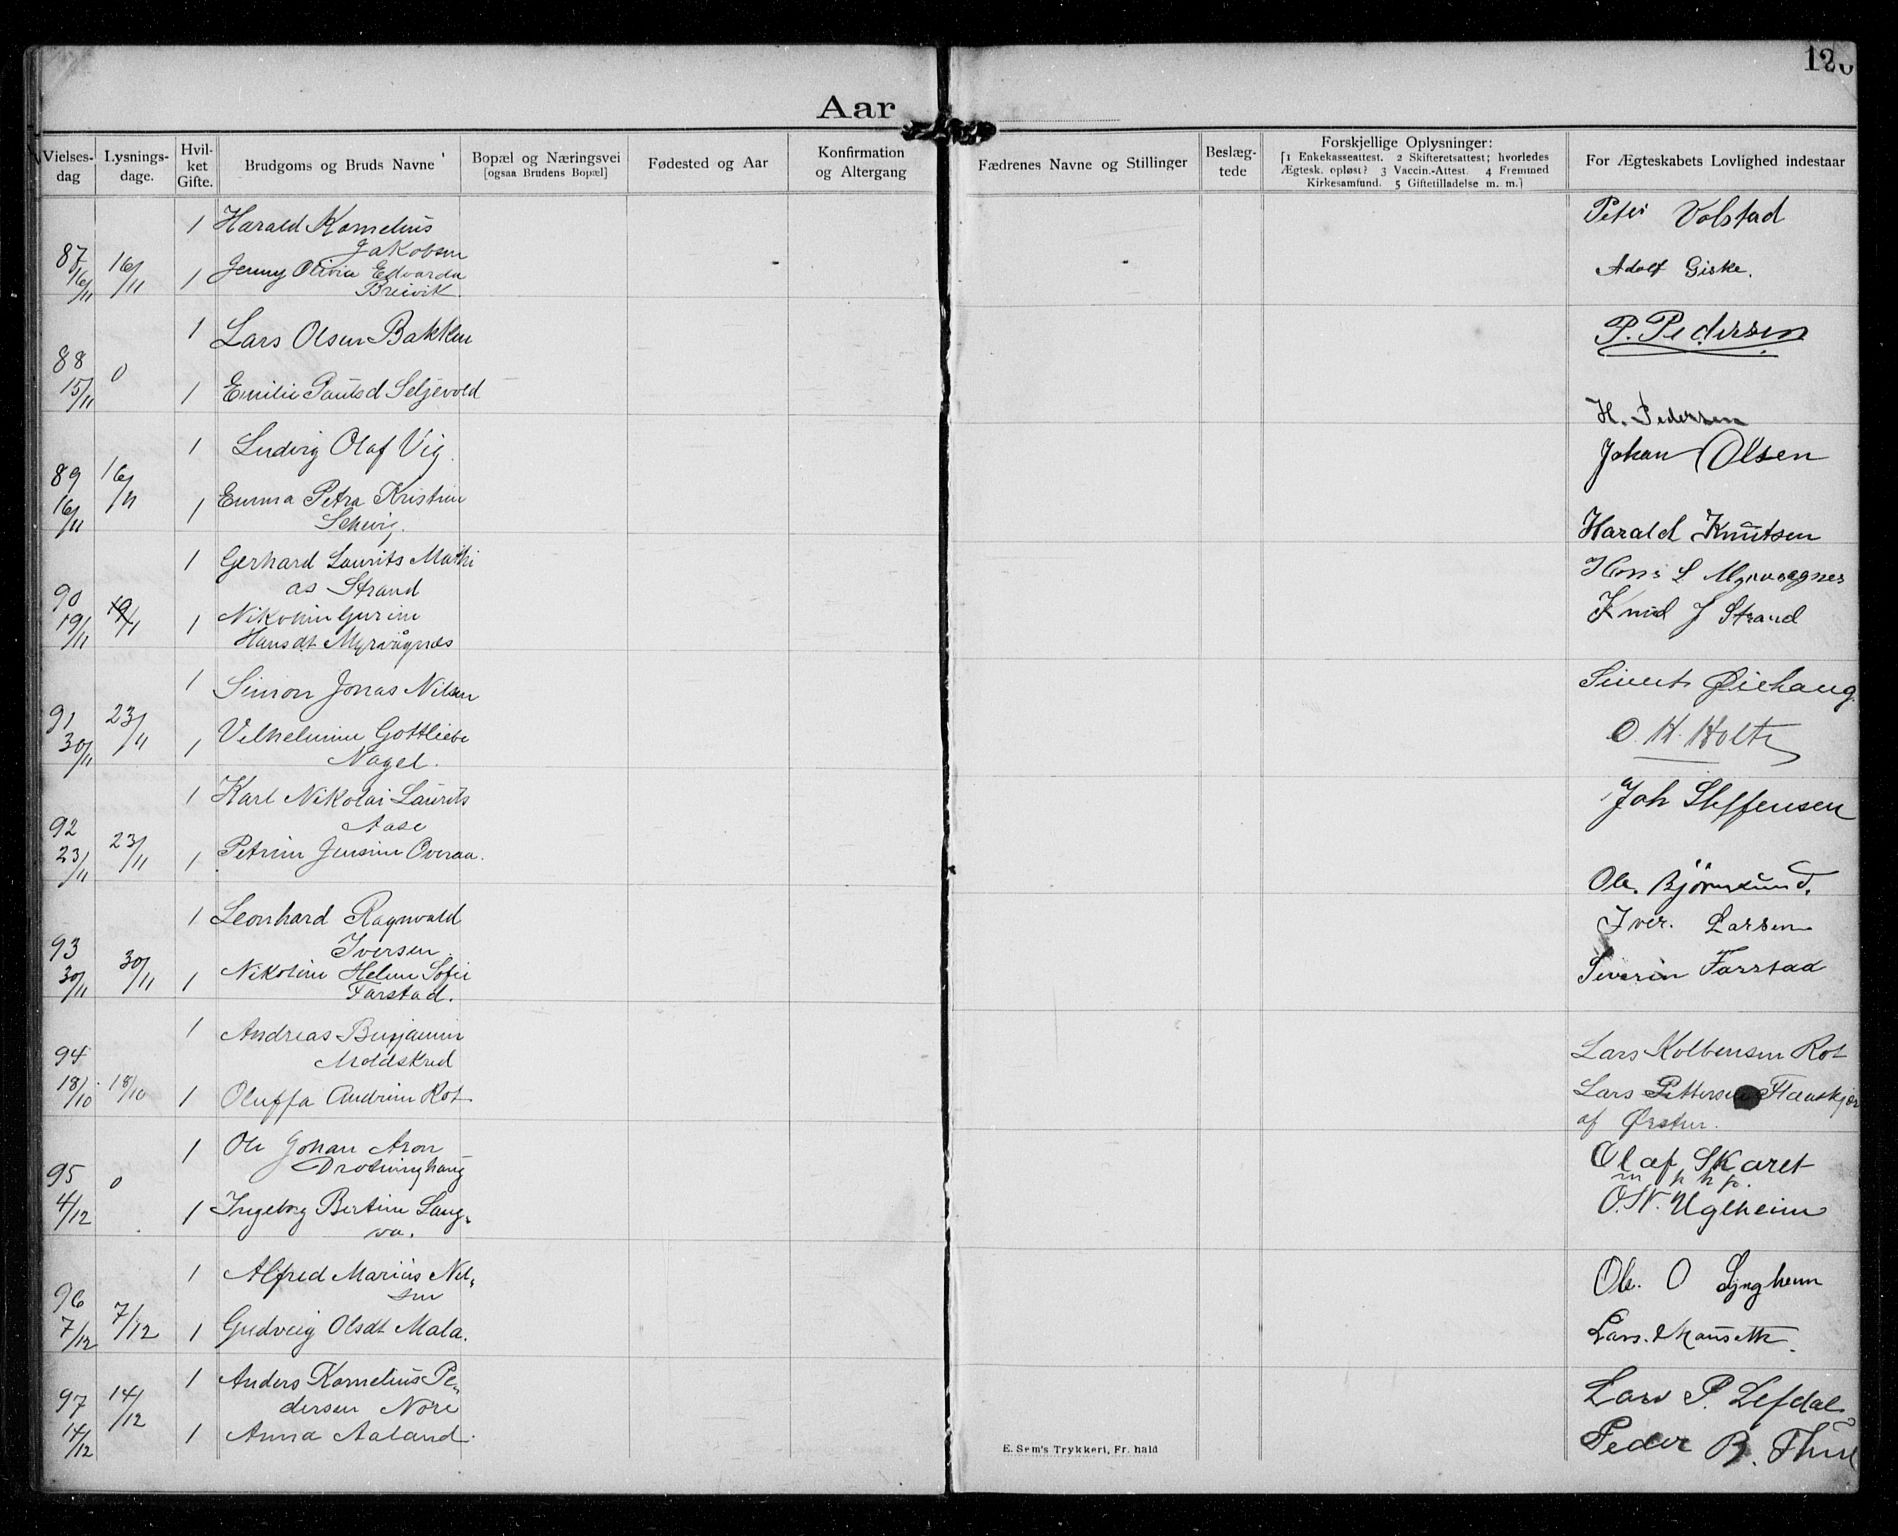 120
Aar
Vielses-dag
Lysnings-dage.
Hvil-ket Gifte.
Brudgoms og Bruds Navne
Bopæl og Næringsvei
[ogsaa Brudens Bopæl]
Fødested og Aar
Konfirmation og Altergang
Fædrenes Navne og Stillinger
Beslæg-tede
Forskjellige Oplysninger:
[1 Enkekasseattest. 2 Skifteretsattest; hvorledes
Ægtesk. opløst? 3 Vaccin.-Attest. 4 Fremmed
Kirkesamfund. 5 Giftetilladelse m. m.]
For Ægteskabets Lovlighed indestaar
1 Harald Kornelius Peter Volstad
Jakobsen
87
16/11 16/11 1 Jenny Olivia Edvarda Adolf Giske.
Breivik.
1 Lars Olsen Bakken P. Pedersen
88
15/11 0 1 Emilie Paulsd Seljevold H. Pedersen
1 Ludvig Olaf Vig. Johan Olsen
89
16/11 16/11 1 Emma Petra Kristine Harald Knutsen
1 Gerhard Laurits Mathi Hans L Myrvaagnes
as Strand
90
19/11 19/11 1 Nikoline Gurine Knud J Strand
Hansdt Myrvågnes
1 Simon Jonas Nilsen Sivert Øiehaug
91
30/11 23/11 1 Vilhelmine Gottliebe O. H. Holte
Nagel.
1 Karl Nikolai Laurits Joh Steffensen
Aase
92
23/11 23/11 1 Petrine Jensine Overaa. Ole. Bjørnsund.
1 Leonhard Ragnvald Iver. Larsen
Iversen
93
30/11 30/11 1 Nikoline Helene Sofie Severin Farstad
Farstad.
1 Andreas Benjamin Lars Kolbensen Rot
Moldskred
94
18/10 18/10 1 Oluffa Andrine Rot Lars Pettersen
af Ørsten.
1 Ole Johan Aron Olaf Skaret
Drotninghaug
95
4/12 0 1 Ingeborg Bertine Lang- O. N. Uglheim
va.
1 Alfred Marius Nil- Ole. O Lyngheim
sen
96
7/12 7/12 1 Gudveig Olsdt Mala. Lars. Mauseth.
1 Anders Kornelius Pe- Lars P. Lefdal
dersen Nore
97
14/12 14/12 1 Anna Aaland. Peder B. Thue
E. Sem's Trykkeri, Fr. hald